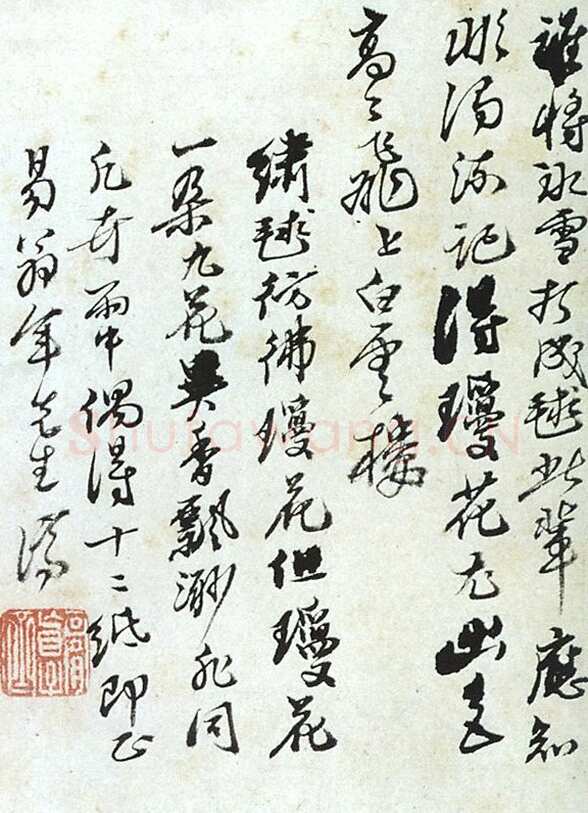 誰將冰雪打成毬此輩應知
濁流記得瓊花尤出色
高々飛上白雲樓
繡毬彷彿瓊花但瓊花
一朵九花異香飄渺非同
凡卉雨中偶得十二紙即正
易翁年先生 濤
Shufawang.CN